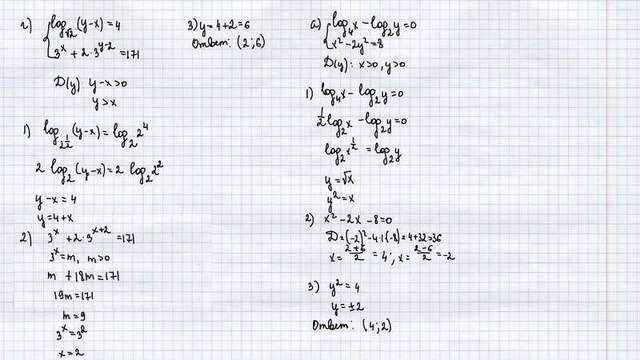 г) { log_√2 (y-x) = 4
3^x + 2·3^(y-2) = 171
D(y) y-x>0
y>x
1) log_(2^(1/2)) (y-x) = log_2 2^4
2 log_2 (y-x) = 2 log_2 2^2
y-x = 4
y = 4+x
2) 3^x + 2·3^(x+2) = 171
3^x = m, m>0
m + 18m = 171
19m = 171
m = 9
3^x = 3^2
x = 2
3) y = 4+2 = 6
Ответ: (2; 6)
а) { log_4 x - log_2 y = 0
x^2 - 2y^2 = 8
D(y): x>0, y>0
1) log_4 x - log_2 y = 0
1/2 log_2 x - log_2 y = 0
log_2 x^(1/2) = log_2 y
y = √x
y^2 = x
2) x^2 - 2x - 8 = 0
D = (-2)^2 - 4·1(-8) = 4+32 = 36
x = (2+6)/2 = 4; x = (2-6)/2 = -2
3) y^2 = 4
y = ±2
Ответ: (4; 2)